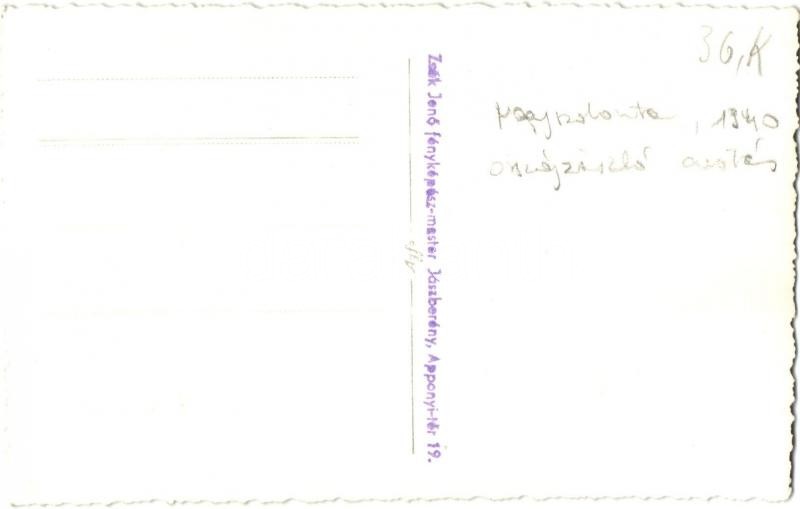 36,K
Nagyszalonta, 1940
országzászló avatás
Zsák Jenő fényképész-mester Jászberény, Apponyi-tér 19.